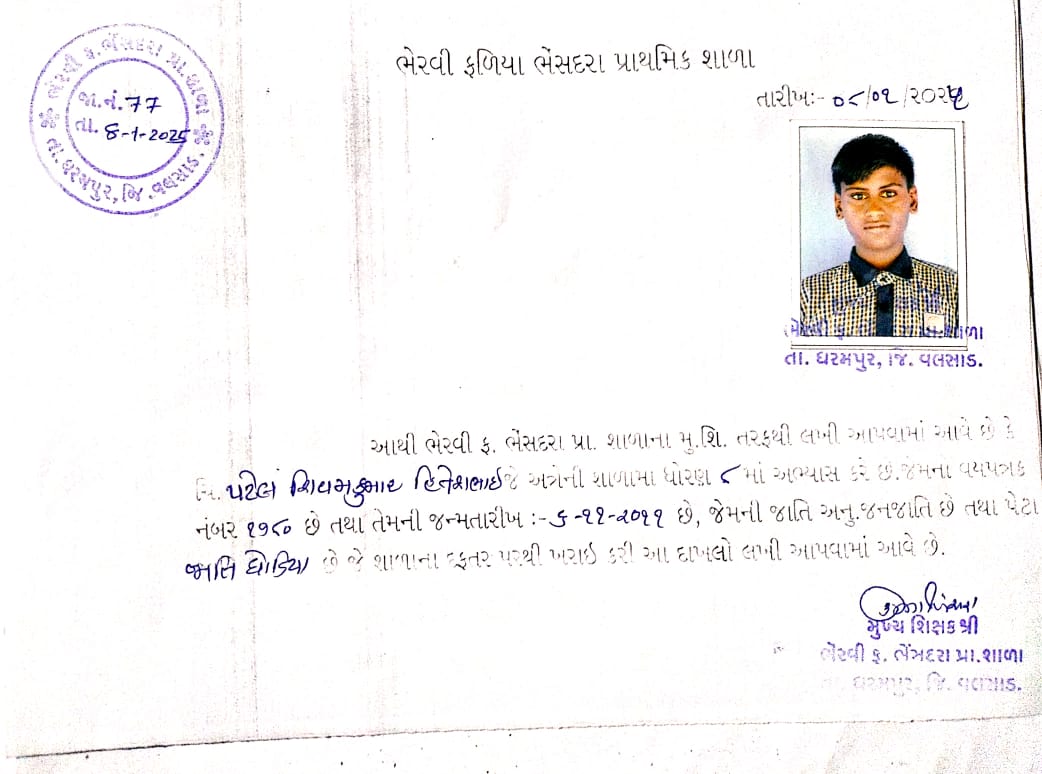 ભેરવી ફ. ભેંસદરા પ્રા. શાળા
જા.નં. 77
તા. 8-1-2025
તા. ધરમપુર, જિ. વલસાડ.
ભેરવી ફળિયા ભેંસદરા પ્રાથમિક શાળા
તારીખઃ- ૦૮/૦૧/૨૦૨૫
ભેરવી ફ. પ્રા.શાળા
તા. ધરમપુર, જિ. વલસાડ.
આથી ભેરવી ફ. ભેંસદરા પ્રા. શાળાના મુ.શિ. તરફથી લખી આપવામાં આવે છે કે
ચિ. પટેલ શિવમકુમાર હિતેશભાઇ જે અત્રેની શાળામા ધોરણ ૮ માં અભ્યાસ કરે છે.જેમના વયપત્રક
નંબર ૧૧૮૦ છે તથા તેમની જન્મતારીખ :- ૬-૧૧-૨૦૧૧ છે, જેમની જાતિ અનુ.જનજાતિ છે તથા પેટા
જાતિ ધોડિયા છે જે શાળાના દફતર પરથી ખરાઇ કરી આ દાખલો લખી આપવામાં આવે છે.
મુખ્ય શિક્ષકશ્રી
ભેરવી ફ. ભેંસદરા પ્રા.શાળા
તા. ધરમપુર, જિ. વલસાડ.